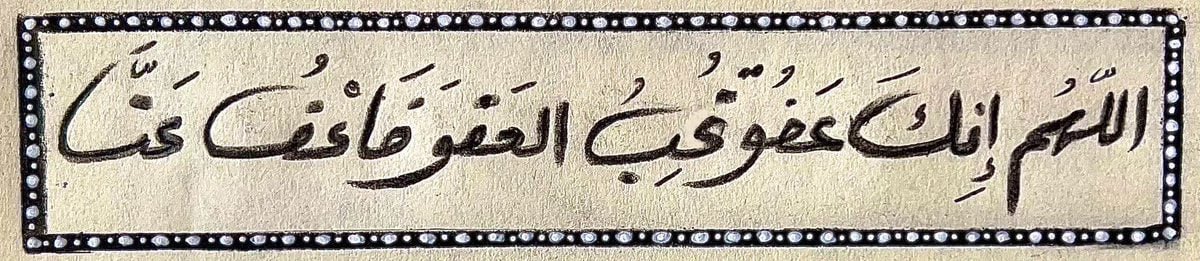 اللّهُم إِنكَ عَفُوٌّ تُحِبُ العَفوَ فَاعْفُ عَنَّا